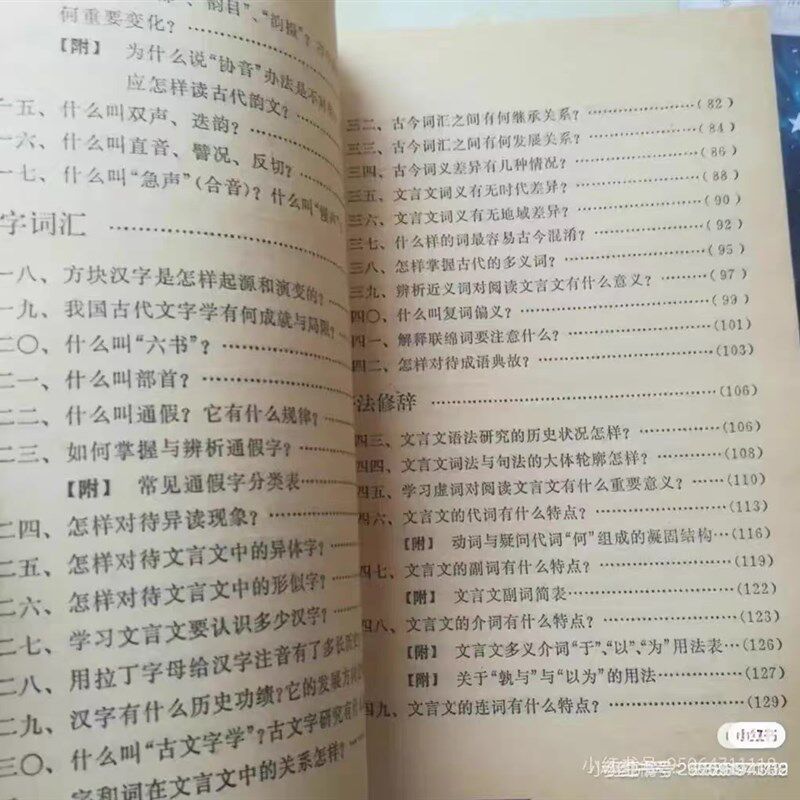 韵目”、“韵摄”？
何重要变化？
【附】 为什么说“协音”办法是不
应怎样读古代韵文？
一五、什么叫双声、迭韵？
一六、什么叫直音、譬况、反切？
一七、什么叫“急声”（合音）？什么叫“慢
字词汇
一八、方块汉字是怎样起源和演变的？
一九、我国古代文字学有何成就与局限？
二〇、什么叫“六书”？
二一、什么叫部首？
二二、什么叫通假？它有什么规律？
二三、如何掌握与辨析通假字？
【附】 常见通假字分类表
二四、怎样对待异读现象？
二五、怎样对待文言文中的异体字？
二六、怎样对待文言文中的形似字？
二七、学习文言文要认识多少汉字？
二八、用拉丁字母给汉字注音有了多长历
二九、汉字有什么历史功绩？它的发展方
三〇、什么叫“古文字学”？古文字研究有
字和词在文言文中的关系怎样？
三二、古今词汇之间有何继承关系？（82）
三三、古今词汇之间有何发展关系？（84）
三四、古今词义差异有几种情况？（86）
三五、文言文词义有无时代差异？（88）
三六、文言文词义有无地域差异？（90）
三七、什么样的词最容易古今混淆？（92）
三八、怎样掌握古代的多义词？（95）
三九、辨析近义词对阅读文言文有什么意义？（97）
四〇、什么叫复词偏义？（99）
四一、解释联绵词要注意什么？（101）
四二、怎样对待成语典故？（103）
法修辞（106）
四三、文言文语法研究的历史状况怎样？（106）
四四、文言文词法与句法的大体轮廓怎样？（108）
四五、学习虚词对阅读文言文有什么重要意义？（110）
四六、文言文的代词有什么特点？（113）
【附】 动词与疑问代词“何”组成的凝固结构（116）
四七、文言文的副词有什么特点？（119）
【附】 文言文副词简表（122）
四八、文言文的介词有什么特点？（123）
【附】 文言文多义介词“于”、“以”、“为”用法表（126）
【附】 关于“孰与”与“以为”的用法（127）
四九、文言文的连词有什么特点？（129）
小红书